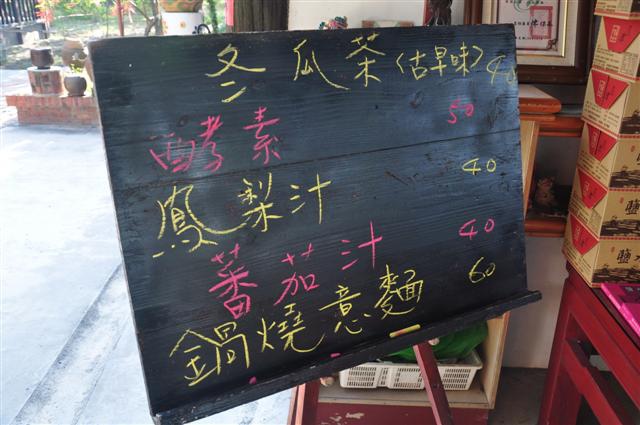 冬瓜茶(古早味) 40
酵素 50
鳳梨汁 40
蕃茄汁 40
鍋燒意麵 60
鹽